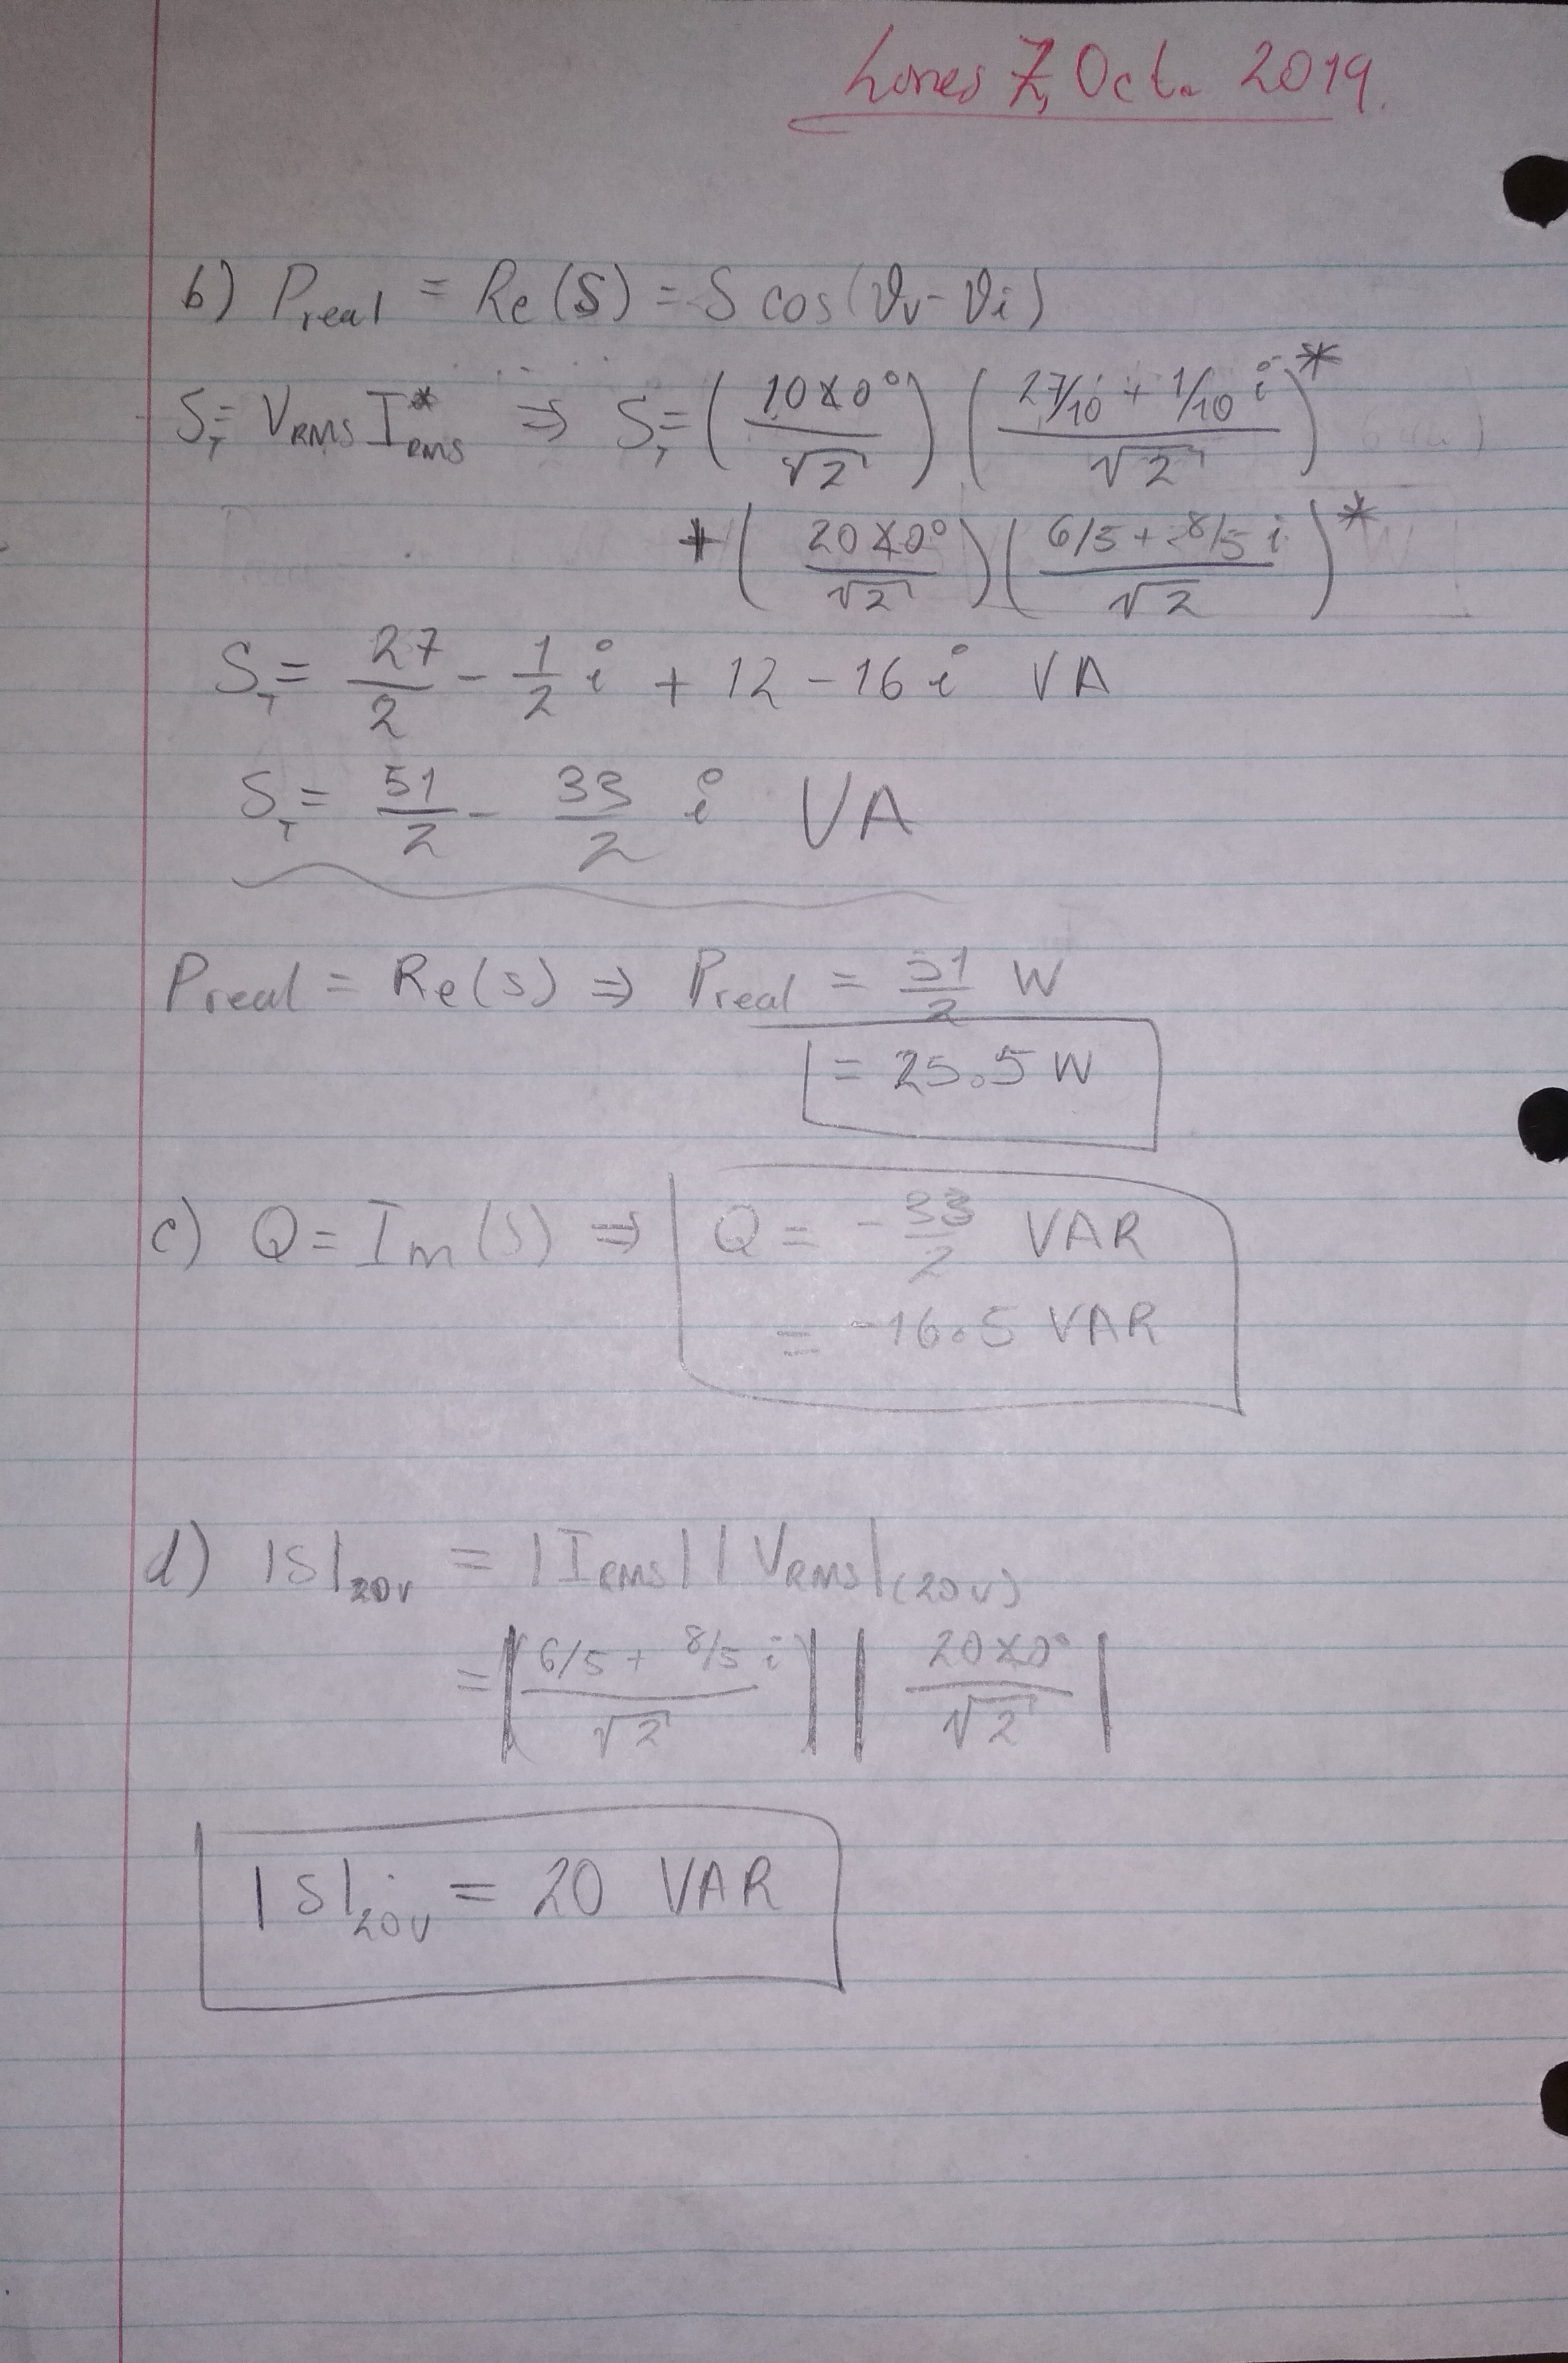 Lunes 7, Oct. 2019.
b) Preal = Re(S) = S cos(θv - θi)
S_T = V_RMS I*_RMS ⇒ S_T = (10∡0°/√2) ((27/10 + 1/10 i)/√2)*
+ (20∡0°/√2) ((6/5 + 8/5 i)/√2)*
S_T = 27/2 - 1/2 i + 12 - 16 i VA
S_T = 51/2 - 33/2 i VA
Preal = Re(s) ⇒ Preal = 51/2 W
= 25.5 W
c) Q = Im(S) ⇒ Q = -33/2 VAR
= -16.5 VAR
d) |S|20v = |I_RMS| |V_RMS|(20v)
= |(6/5 + 8/5 i)/√2| |20∡0°/√2|
|S|20v = 20 VAR